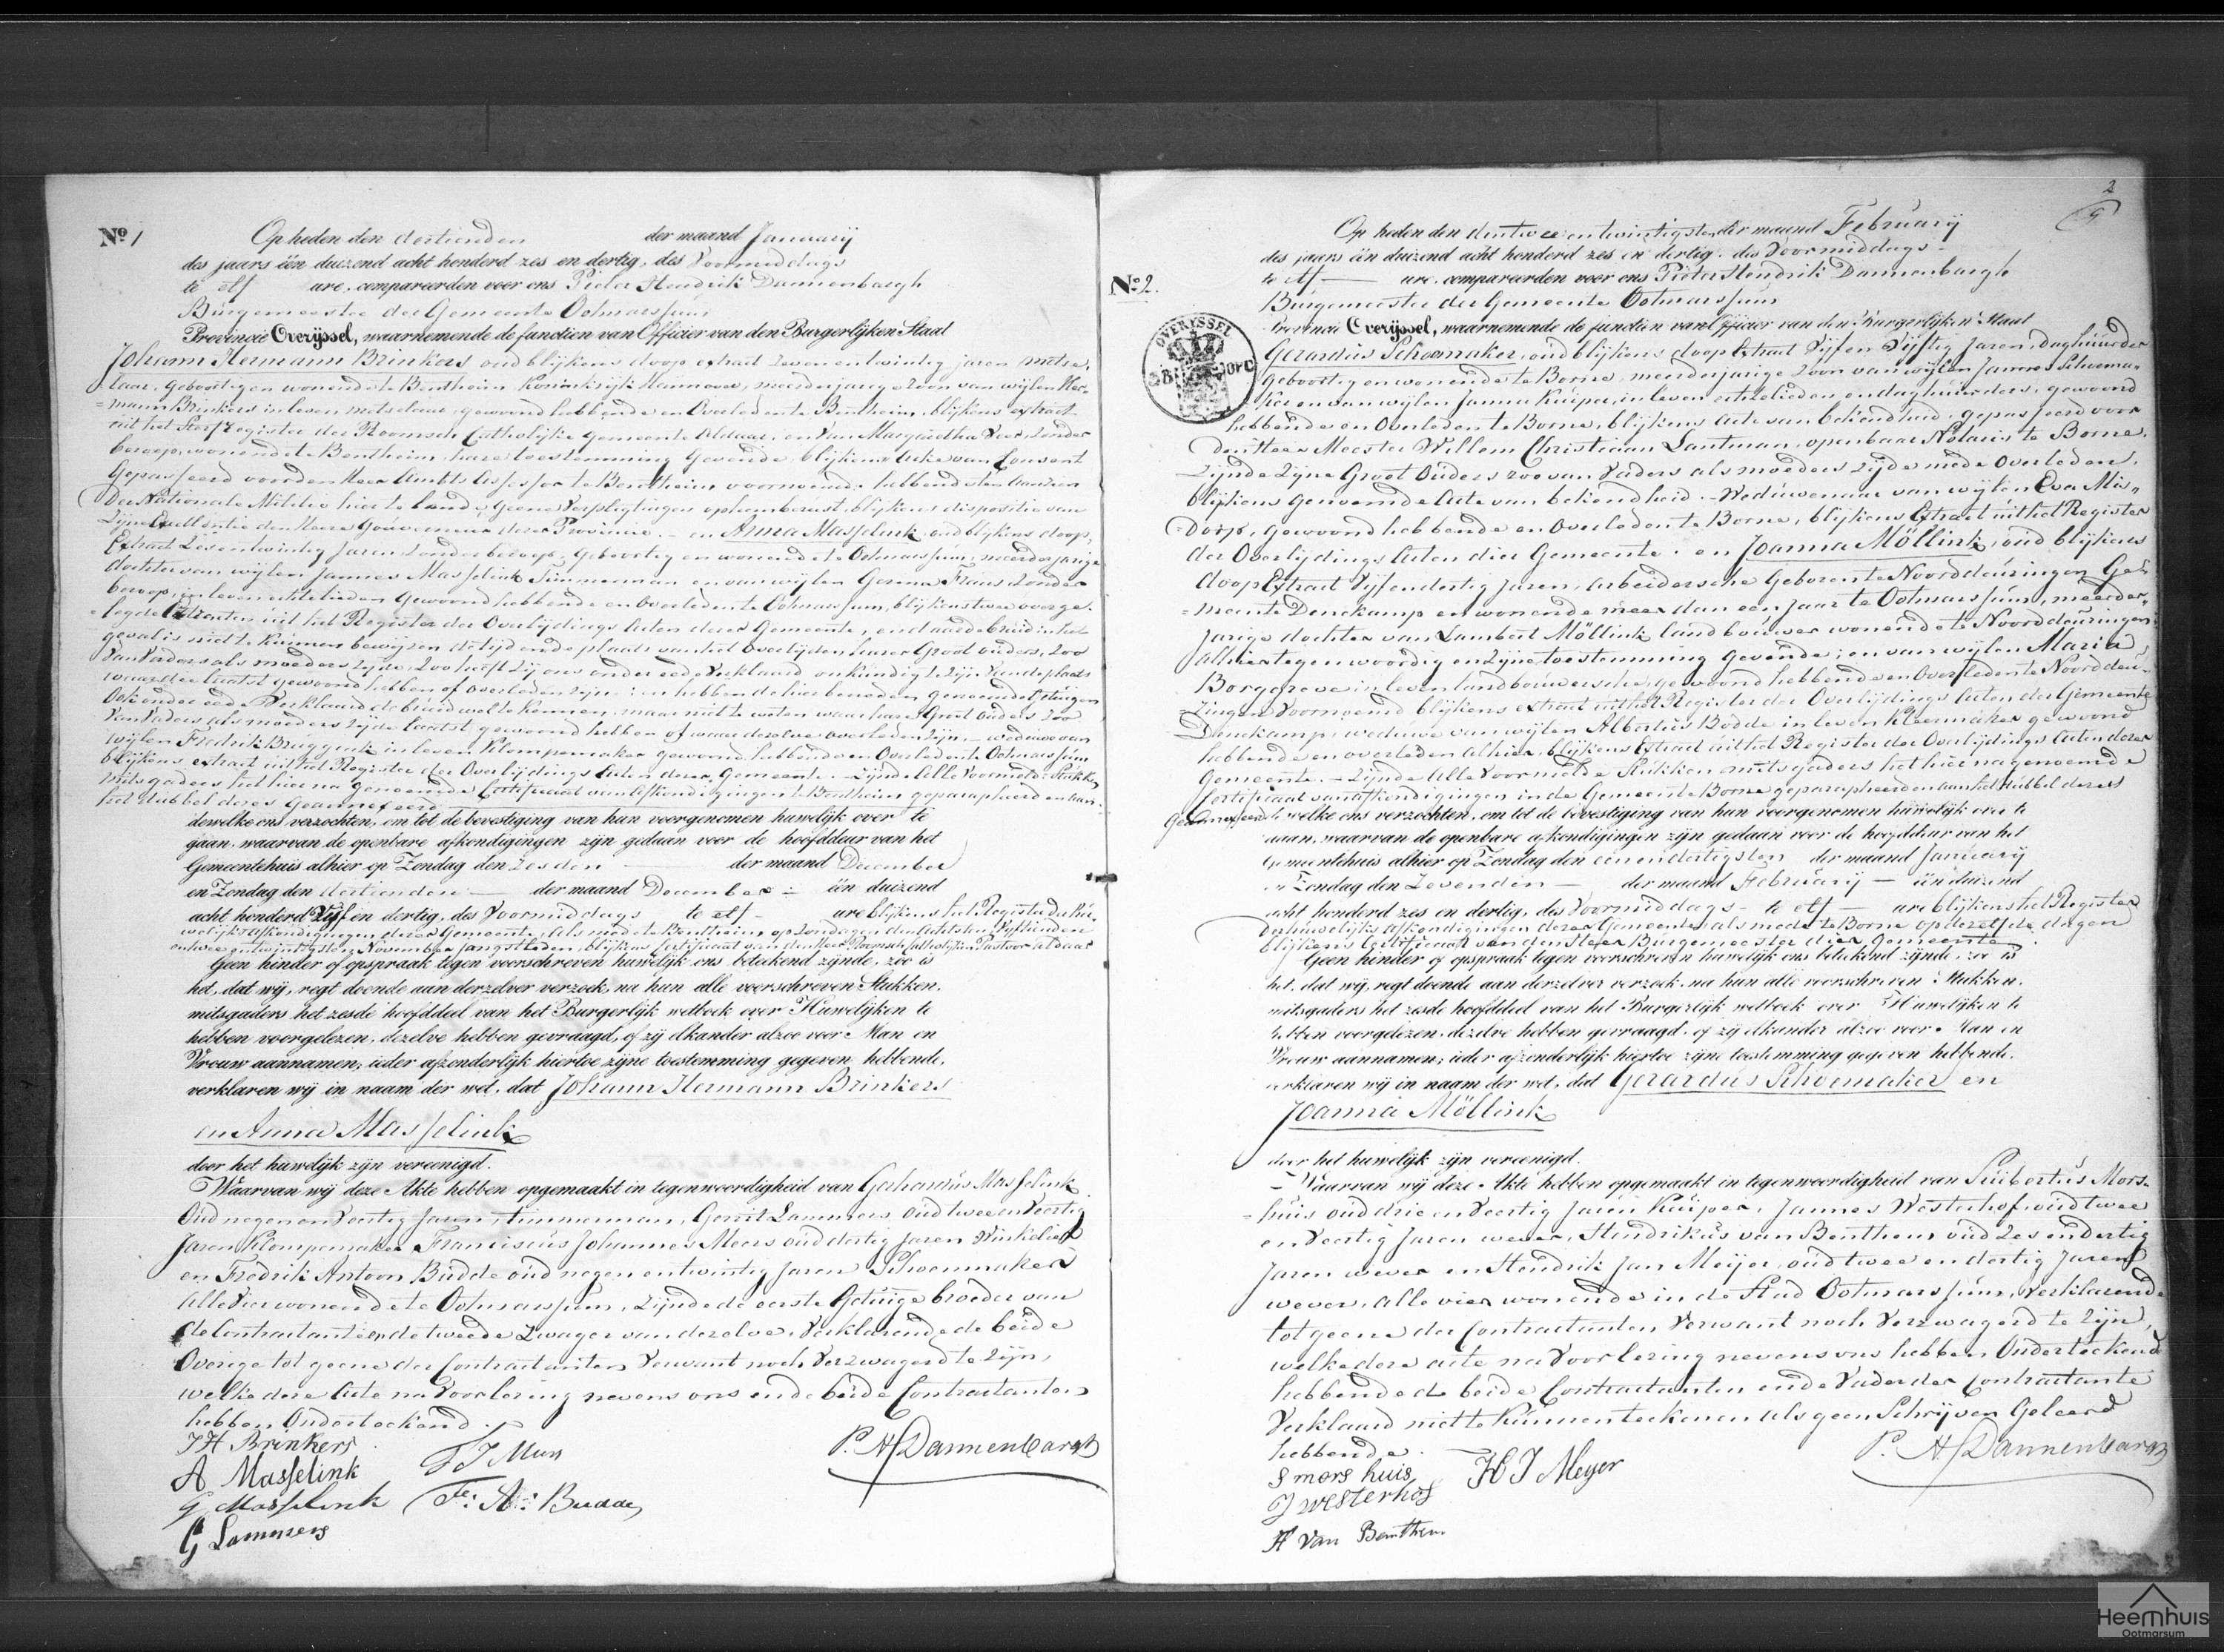 No. 1
Op heden den dertienden der maand Januarij
des jaars één duizend acht honderd zes en dertig, des Voormiddags
te elf ure, compareerden voor ons Pieter Hendrik Dannenbargh
Burgemeester der Gemeente Ootmarssum,
Provincie Overijssel, waarnemende de functien van Officier van den Burgerlijken Staat
Johann Hermann Brinkers oud blijkens doop extract zeven en twintig jaren metse-
laar, geboortig en wonende te Bentheim Koninkrijk Hannover, meerderjarige zoon van wijlen Her-
mann Brinkers in leven metselaar, gewoond hebbende en Overleden te Bentheim, blijkens extract
uit het Sterfregister der Roomsch Catholijke Gemeente Aldaar, en van Margaretha Veer, zonder
beroep, wonende te Bentheim, hare toestemming gevende, blijkens Acte van Consent
gepasseerd voor den Heer Ambts Assessor te Bentheim voornoemd, hebbende ten aanzien
der Nationale Militie hier te lande geene Verpligtingen op hem berust, blijkens dispositie van
Zijne Excellentie den Heere Gouverneur dezer Provincie. – en Anna Masselink oud blijkens doop
Extract zes en twintig Jaren zonder beroep, geboortig en wonende te Ootmarssum, meerderjarige
dochter van wijlen Jannes Masselink Timmerman en van wijlen Gesina Frans zonder
beroep, in leven echtelieden gewoond hebbende en Overleden te Ootmarssum, blijkens twee overge-
legde Extracten uit het Register der Overlijdings Acten dezer Gemeente, en daar de bruid in het
geval is niet te kunnen bewijzen de tijd en de plaats van het overlijden harer Groot ouders, zoo
van Vaders als moeders zijde, zoo heeft zij ons onder eede Verklaard onkundig te zijn van de plaats
waar die laatst gewoond hebben of overleden zijn; en hebben de hier beneden genoemde Getuigen
Ook onder eede Verklaard de bruid wel te kennen, maar niet te weten waar hare Groot ouders zoo
van Vaders als moeders zijde laatst gewoond hebben of waar dezelve overleden zijn, – weduwe van
wijlen Fredrik Bruggink in leven Klompemaker gewoond hebbende en Overleden te Ootmarssum
blijkens extract uit het Register der Overlijdings Acten dezer Gemeente. – Zijnde Alle Voormelde Stukken
mitsgaders het hier na genoemde Certificaat van Afkondigingen te Bentheim geparapheerd en aan
het dubbel dezes geannexeerd
dewelke ons verzochten, om tot de bevestiging van hun voorgenomen huwelijk over te
gaan, waarvan de openbare afkondigingen zijn gedaan voor de hoofddeur van het
Gemeentehuis alhier op Zondag den Zesden der maand December
en Zondag den dertienden der maand December één duizend
acht honderd Vijf en dertig, des Voormiddags te elf ure blijkens het Register der Hu-
welijks afkondigingen dezer Gemeente, Als mede te Bentheim, op Zondagen den Achtsten, Vijftienden
en twee en twintigsten November Jongstleden, blijkens Certificaat van den Heer Roomsch Catholijken Pastoor Aldaar
Geen hinder of opspraak tegen voorschreven huwelijk ons betekend zijnde, zóó is
het, dat wij, regt doende aan derzelver verzoek, na hun alle voorschreven Stukken,
mitsgaders het zesde hoofddeel van het Burgerlijk wetboek over Huwelijken te
hebben voorgelezen, dezelve hebben gevraagd, of zij elkander alzoo voor Man en
Vrouw aannamen; ieder afzonderlijk hiertoe zijne toestemming gegeven hebbende,
verklaren wij in naam der wet, dat Johann Hermann Brinkers
en Anna Masselink
door het huwelijk zijn vereenigd.
Waarvan wij deze Akte hebben opgemaakt in tegenwoordigheid van Gerhardus Masselink
Oud negen en Veertig Jaren, timmerman, Gerrit Lammers oud twee en Veertig
Jaren Klompemaker Franciscus Johannes Meers oud dertig Jaren Winkelier
en Fredrik Antoon Budde oud negen en twintig Jaren Schoenmaker
Alle Vier wonende te Ootmarssum, zijnde de eerste Getuige broeder van
de Contractante en de tweede Zwager van dezelve, Verklarende de beide
Overige tot geene der Contractanten Verwant noch Verzwagerd te zijn,
welke deze Acte na Voorlezing nevens ons en de beide Contractanten
hebben Onderteekend.
J H Brinkers
A Masselink
G Masselink
G Lammers
F J Mers
Fr: A: Budde
P. H. Dannenbargh
2
No. 2.
OVERYSSEL
Op heden den tweeentwintigsten der maand Februarij
des jaars één duizend acht honderd zes en dertig, des Voormiddags
te elf ure, compareerden voor ons Pieter Hendrik Dannenbargh
Burgemeester der Gemeente Ootmarssum
Provincie Overijssel, waarnemende de functien van Officier van den Burgerlijken Staat
Gerardus Schoemaker, oud blijkens doop Extract Vijf en Vijftig Jaren, daghuurder
geboortig en wonende te Borne, meerderjarige zoon van wijlen Jannes Schoema-
ker en van wijlen Janna Kuiper, in leven echtelieden en daghuurders, gewoond
hebbende en Overleden te Borne, blijkens Acte van bekendheid, gepasseerd voor
den Heer Meester Willem Christiaan Lantman, openbaar Notaris te Borne,
zijnde zijne Groot Ouders zoo van Vaders als moeders zijde mede Overleden,
blijkens genoemde Acte van bekendheid. – Weduwenaar van wijlen Eva Mis-
dorp, gewoond hebbende en Overleden te Borne, blijkens Extract uit het Register
der Overlijdings Acten dier Gemeente. en Joanna Möllink, oud blijkens
doop Extract Vijf en dertig Jaren, Arbeidersche Geboren te Noorddeuringen Ge-
meente Denekamp en wonende meer dan een Jaar te Ootmarssum, meerder-
jarige dochter van Lambert Möllink landbouwer wonende te Noorddeuringen
Alhier tegenwoordig en zijne toestemming gevende; en van wijlen Maria
Borggreve in leven landbouwersche, gewoond hebbende en Overleden te Noorddeu-
ringen Voornoemd blijkens extract uit het Register der Overlijdings Acten der Gemeente
Denekamp, weduwe van wijlen Albertus Bodde in leven Kleermaker gewoond
hebbende en overleden alhier, blijkens Extract uit het Register der Overlijdings Acten dezer
Gemeente. – Zijnde Alle Voormelde Stukken mitsgaders het hierna genoemde
Certificaat van afkondigingen in de Gemeente Borne geparapheerd en aan het dubbel dezes
Geannexeerd, dewelke ons verzochten, om tot de bevestiging van hun voorgenomen huwelijk over te
gaan, waarvan de openbare afkondigingen zijn gedaan voor de hoofddeur van het
Gemeentehuis alhier op Zondag den eenendertigsten der maand Januarij
en Zondag den Zevenden der maand Februarij één duizend
acht honderd zes en dertig, des Voormiddags te elf ure blijkens het Register
der huwelijks afkondigingen dezer Gemeente, als mede te Borne op dezelfde dagen
blijkens Certificaat van den Heer Burgemeester dier Gemeente.
Geen hinder of opspraak tegen voorschreven huwelijk ons betekend zijnde, zoo is
het, dat wij, regt doende aan derzelver verzoek, na hun alle voorschreven Stukken,
mitsgaders het zesde hoofddeel van het Burgerlijk wetboek over Huwelijken te
hebben voorgelezen, dezelve hebben gevraagd, of zij elkander alzoo voor Man en
Vrouw aannamen; ieder afzonderlijk hiertoe zijne toestemming gegeven hebbende,
verklaren wij in naam der wet, dat Gerardus Schoemaker en
Joanna Möllink
door het huwelijk zijn vereenigd.
Waarvan wij deze Akte hebben opgemaakt in tegenwoordigheid van Suibertus Mors-
huis oud drie en Veertig Jaren Kuiper, Jannes Westerhof oud twee
en Veertig Jaren wever, Hendrikus van Benthem oud zes en dertig
Jaren wever en Hendrik Jan Meijer, oud twee en dertig Jaren
wever, Alle vier wonende in de Stad Ootmarssum, Verklarende
tot geene der Contractanten Verwant noch Verzwagerd te zijn,
welke deze acte na Voorlezing nevens ons hebben Onderteekend
hebbende de beide Contractanten en de Vader der Contractante
Verklaard niet te Kunnen teekenen als geen Schrijven Geleerd
hebbende.
S mors huis
J westerhof
H van Benthem
H J Meyer
P. H. Dannenbargh
Heemhuis
Ootmarsum